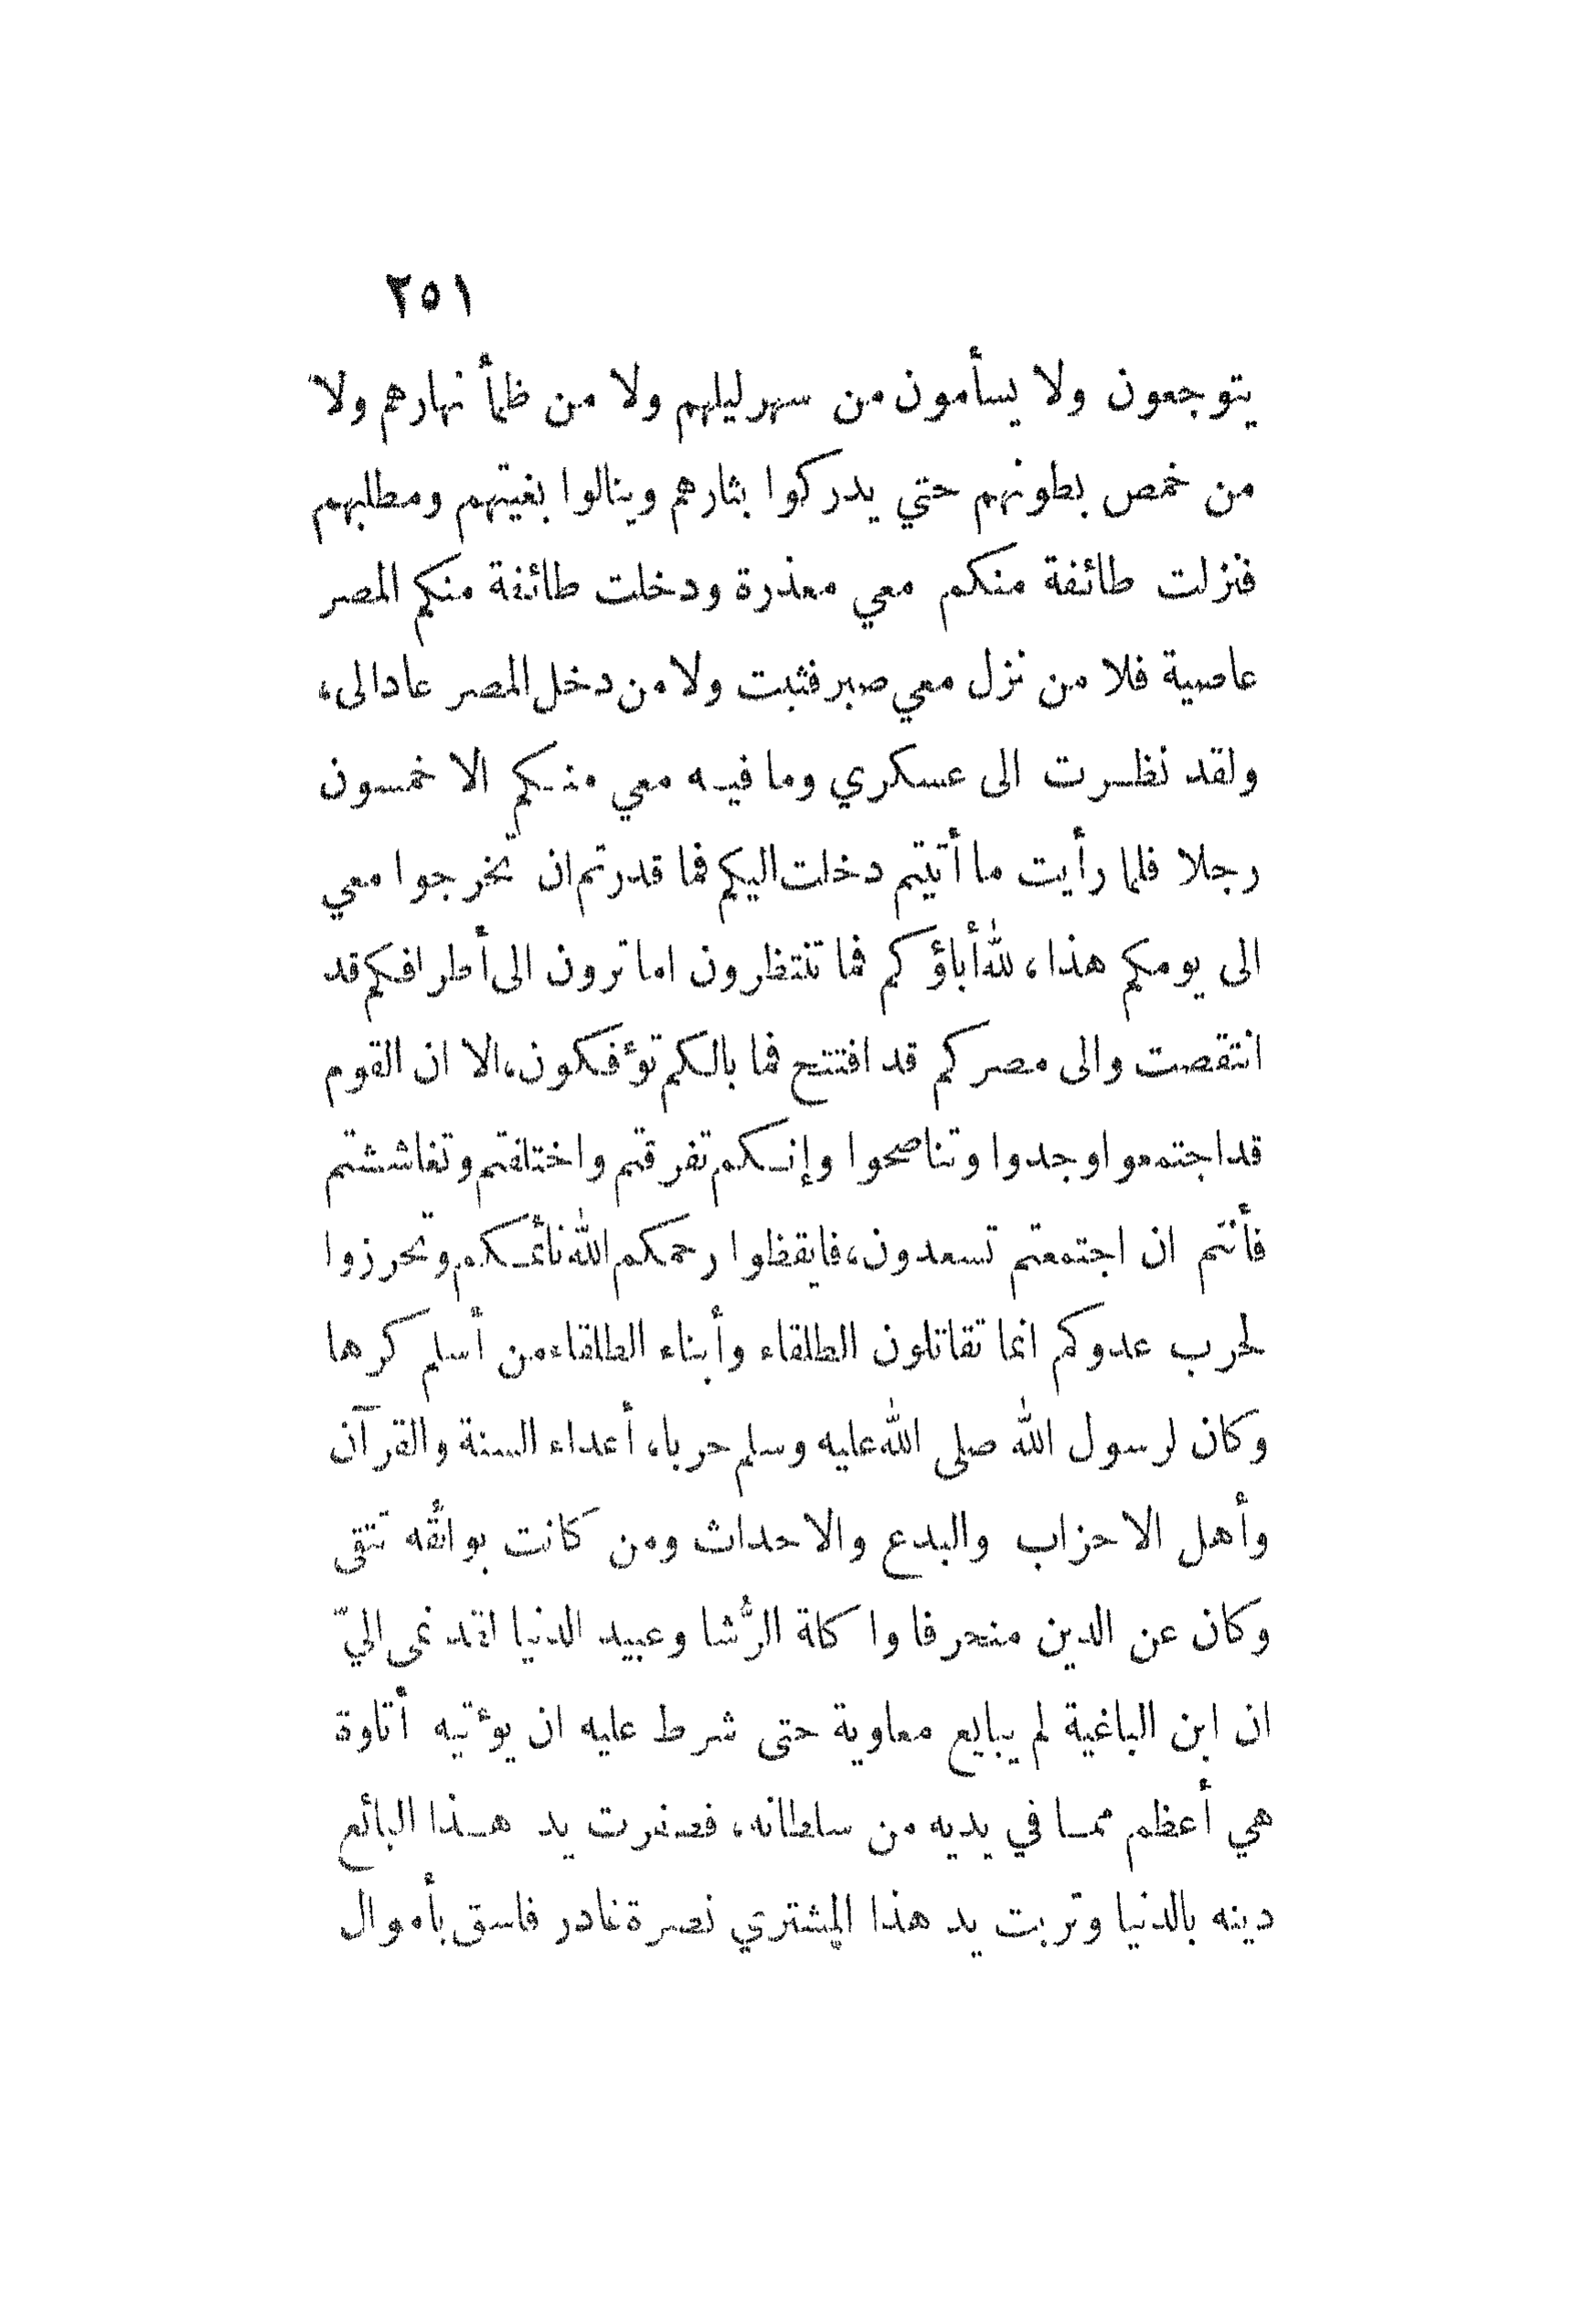 ٢٥١
يتوجعون ولا يسأمون من سهر ليلهم ولا من ظمأ نهارهم ولا
من خمص بطونهم حتي يدركوا بثارهم وينالوا بغيتهم ومطلبهم
فنزلت طائفة منكم معي معذرة ودخلت طائفة منكم المصر
عاصية فلا من نزل معي صبر فثبت ولا من دخل المصر عاد الى،
ولقد نظرت الى عسكري وما فيه معي منكم الا خمسون
رجلا فلما رأيت ما أتيتم دخلت اليكم فما قدرتم ان تخرجوا معي
الى يومكم هذا، لله أباؤكم فما تنتظرون اما ترون الى أطرافكم قد
انتقصت والى مصركم قد افتتح فما بالكم تؤفكون، الا ان القوم
قد اجتمعوا وجدوا وتناصحوا وإنكم تفرقتم واختلفتم وتغاششتم
فأنتم ان اجتمعتم تسعدون، فايقظوا رحمكم الله نائمكم وتحرزوا
لحرب عدوكم انما تقاتلون الطلقاء وأبناء الطلقاء من أسلم كرها
وكان لرسول الله صلى الله عليه وسلم حربا، أعداء السنة والقرآن
وأهل الاحزاب والبدع والاحداث ومن كانت بوائقه تتقى
وكان عن الدين منحرفا واكلة الرُّشا وعبيد الدنيا لقد نمى اليّ
ان ابن الباغية لم يبايع معاوية حتى شرط عليه ان يؤتيه أتاوة
هي أعظم مما في يديه من سلطانه، فصفرت يد هذا البائع
دينه بالدنيا وتربت يد هذا المشتري نصرة غادر فاسق بأموال